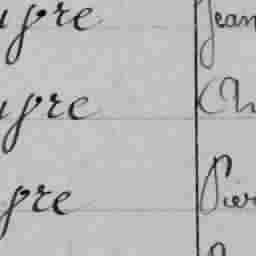 upre Jean
upre Ch
pre Pier